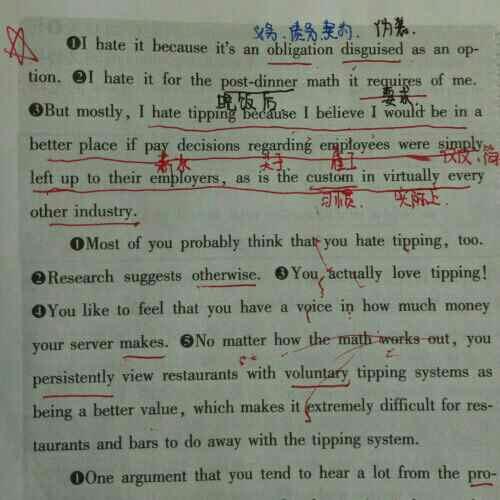 义务、债务、契约. 伪装.
❶I hate it because it's an obligation disguised as an op-
tion. ❷I hate it for the post-dinner math it requires of me.
晚饭后 要求.
❸But mostly, I hate tipping because I believe I would be in a
better place if pay decisions regarding employees were simply
薪水 关于 雇工 仅仅、简
left up to their employers, as is the custom in virtually every
习惯. 实际上.
other industry.
❶Most of you probably think that you hate tipping, too.
❷Research suggests otherwise. ❸You actually love tipping!
❹You like to feel that you have a voice in how much money
your server makes. ❺No matter how the math works out, you
persistently view restaurants with voluntary tipping systems as
being a better value, which makes it extremely difficult for res-
taurants and bars to do away with the tipping system.
❶One argument that you tend to hear a lot from the pro-